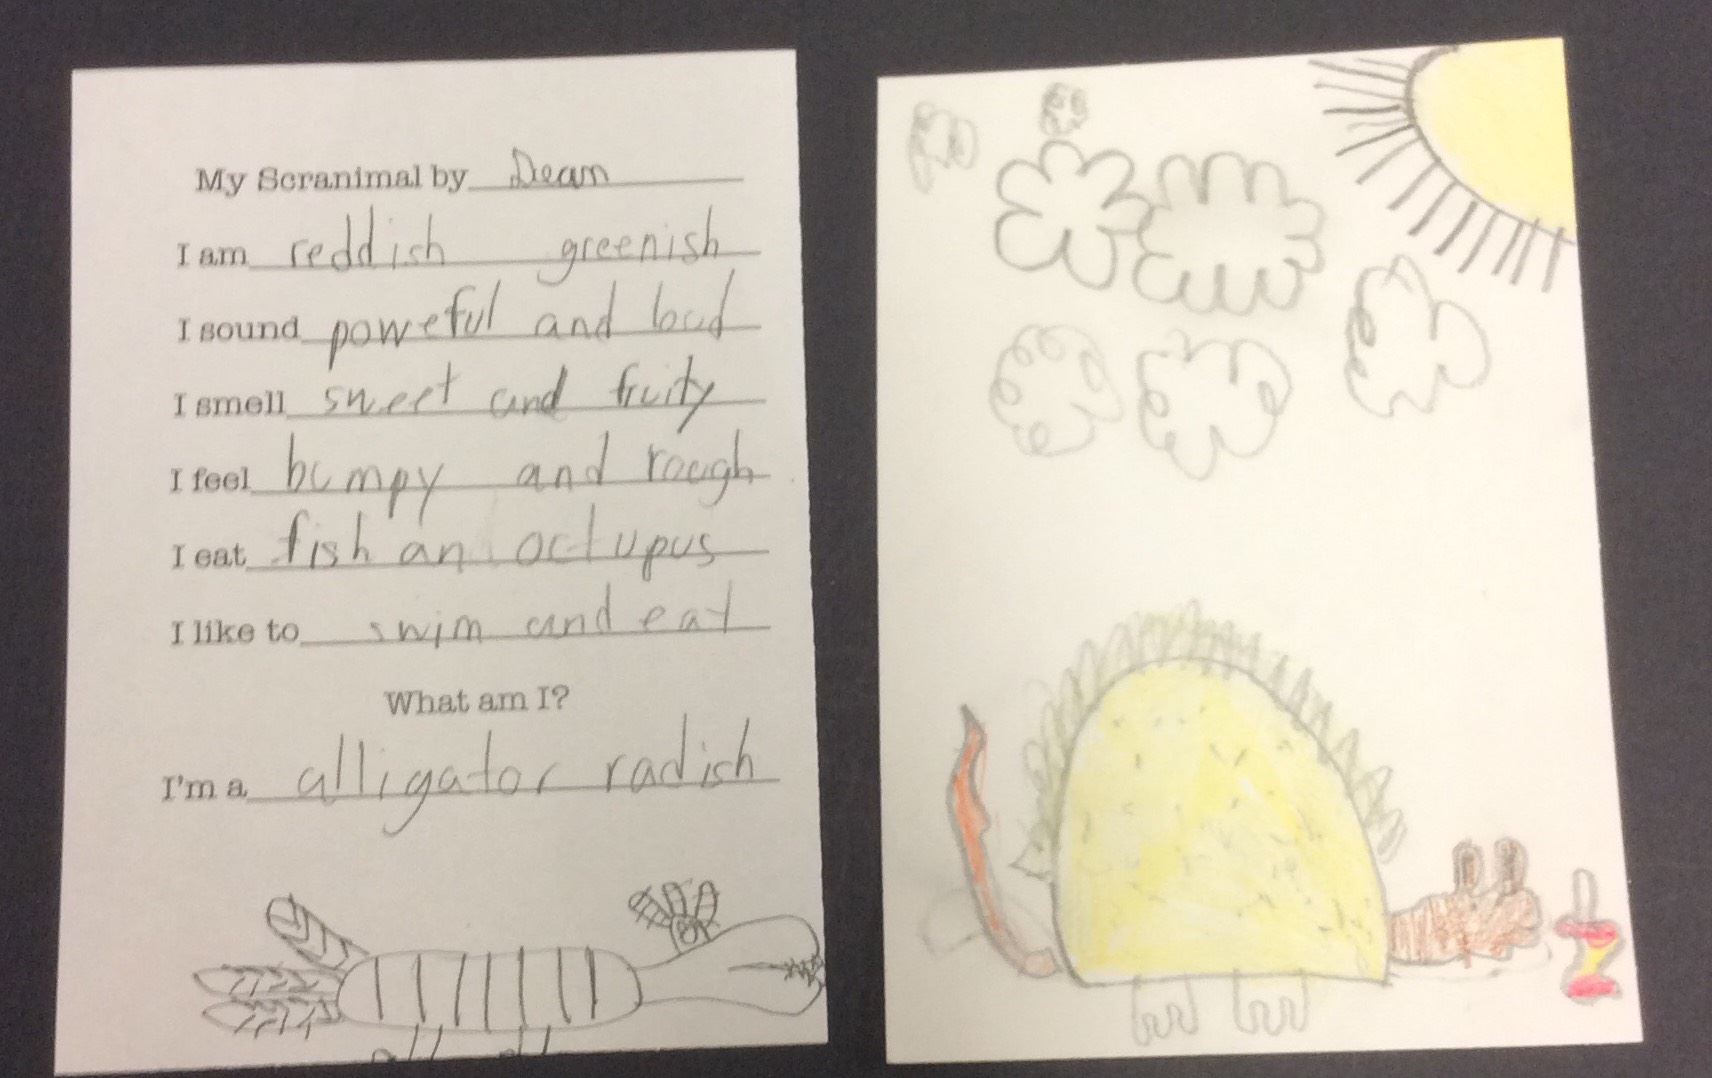 My Scranimal by Dean
I am reddish greenish
I sound poweful and loud
I smell sweet and fruity
I feel bumpy and rough
I eat fish an octupus
I like to swim and eat
What am I?
I'm a alligator radish